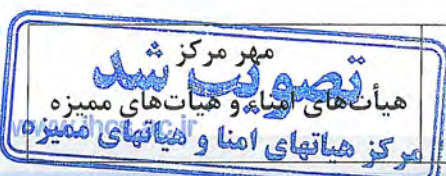 مهر مرکز
هیأت‌های امناء و هیأت‌های ممیزه
تصویب شد
مرکز هیاتهای امنا و هیاتهای ممیزه